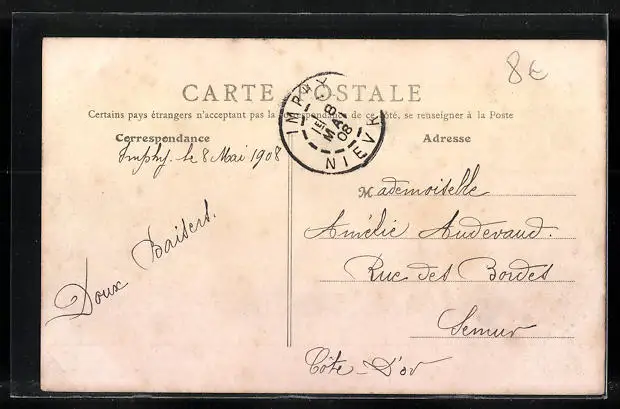 8€
CARTE POSTALE
Certains pays étrangers n'acceptant pas la correspondance de ce côté, se renseigner à la Poste
IMPHY
8
MAI
08
NIEVRE
Correspondance
Adresse
Imphy. le 8 Mai 1908
Doux Baisers.
Mademoiselle
Amélie Audevaud.
Rue des Bordes
Semur
Côte-D'or